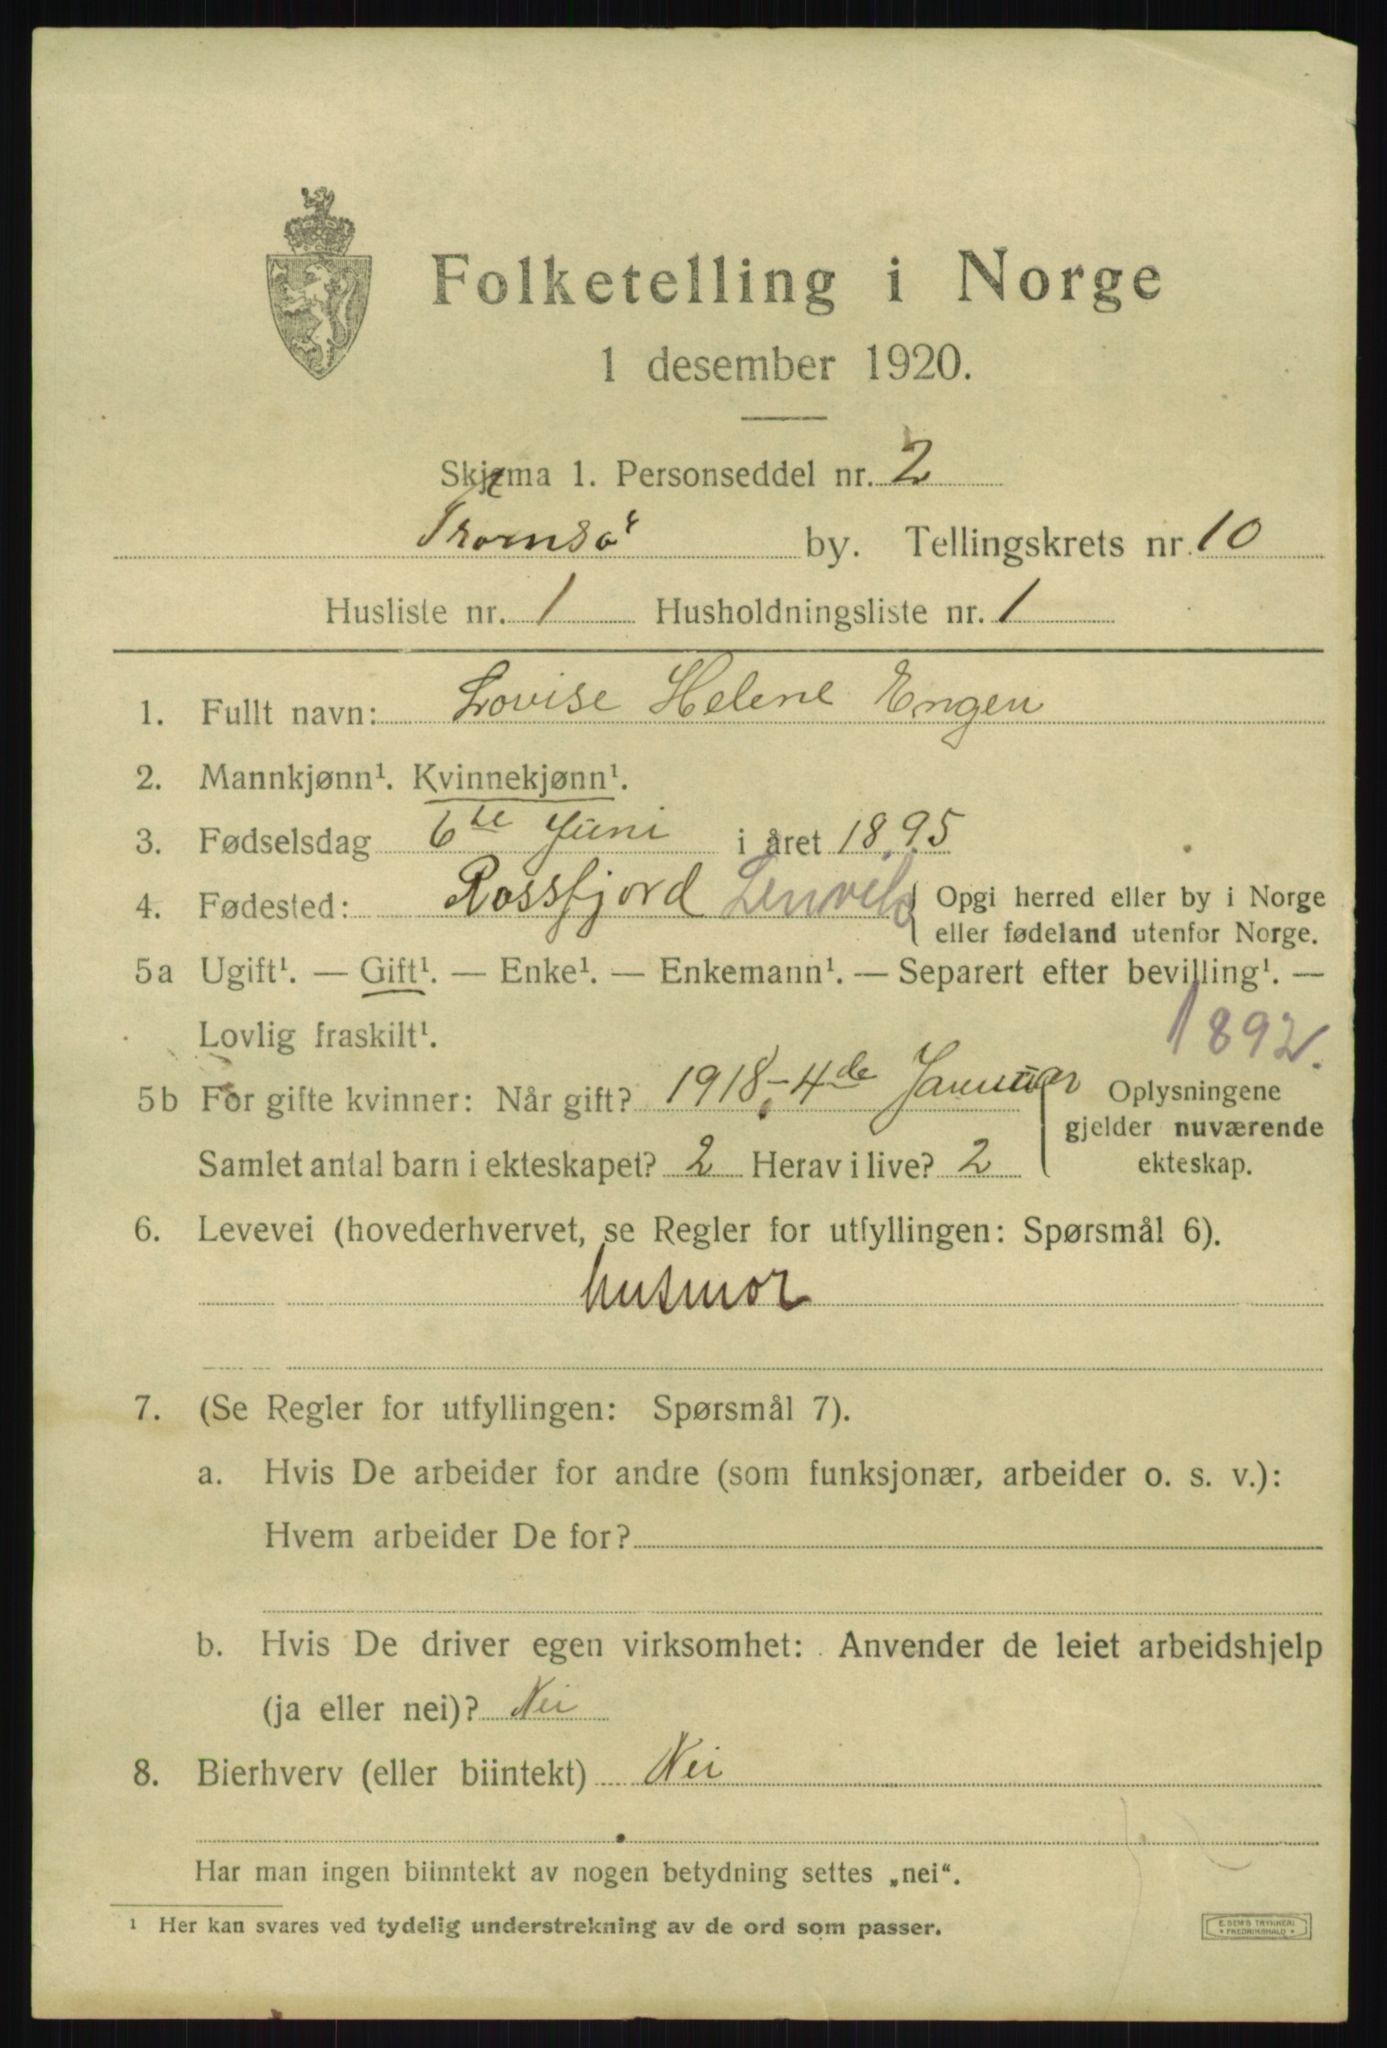 Folketelling i Norge
1 desember 1920.
Skjema 1. Personseddel nr. 2
Tromsø by. Tellingskrets nr. 10
Husliste nr. 1 Husholdningsliste nr. 1
1. Fullt navn: Lovise Helene Engen
2. Mannkjønn¹. Kvinnekjønn¹.
3. Fødselsdag 6te Juni i året 1895
4. Fødested: Rossfjord Lenvik { Opgi herred eller by i Norge
eller fødeland utenfor Norge.
5a Ugift¹. — Gift¹. — Enke¹. — Enkemann¹. — Separert efter bevilling¹. —
Lovlig fraskilt¹. 1892.
5b For gifte kvinner: Når gift? 1918 - 4de Januar { Oplysningene
gjelder nuværende
Samlet antal barn i ekteskapet? 2 Herav i live? 2 ekteskap.
6. Levevei (hovederhvervet, se Regler for utfyllingen: Spørsmål 6).
husmor
7. (Se Regler for utfyllingen: Spørsmål 7).
a. Hvis De arbeider for andre (som funksjonær, arbeider o. s. v.):
Hvem arbeider De for?
b. Hvis De driver egen virksomhet: Anvender de leiet arbeidshjelp
(ja eller nei)? Nei
8. Bierhverv (eller biintekt) Nei
Har man ingen biinntekt av nogen betydning settes „nei“.
¹ Her kan svares ved tydelig understrekning av de ord som passer.
E. SEM'S TRYKKERI
• FREDRIKSHALD •